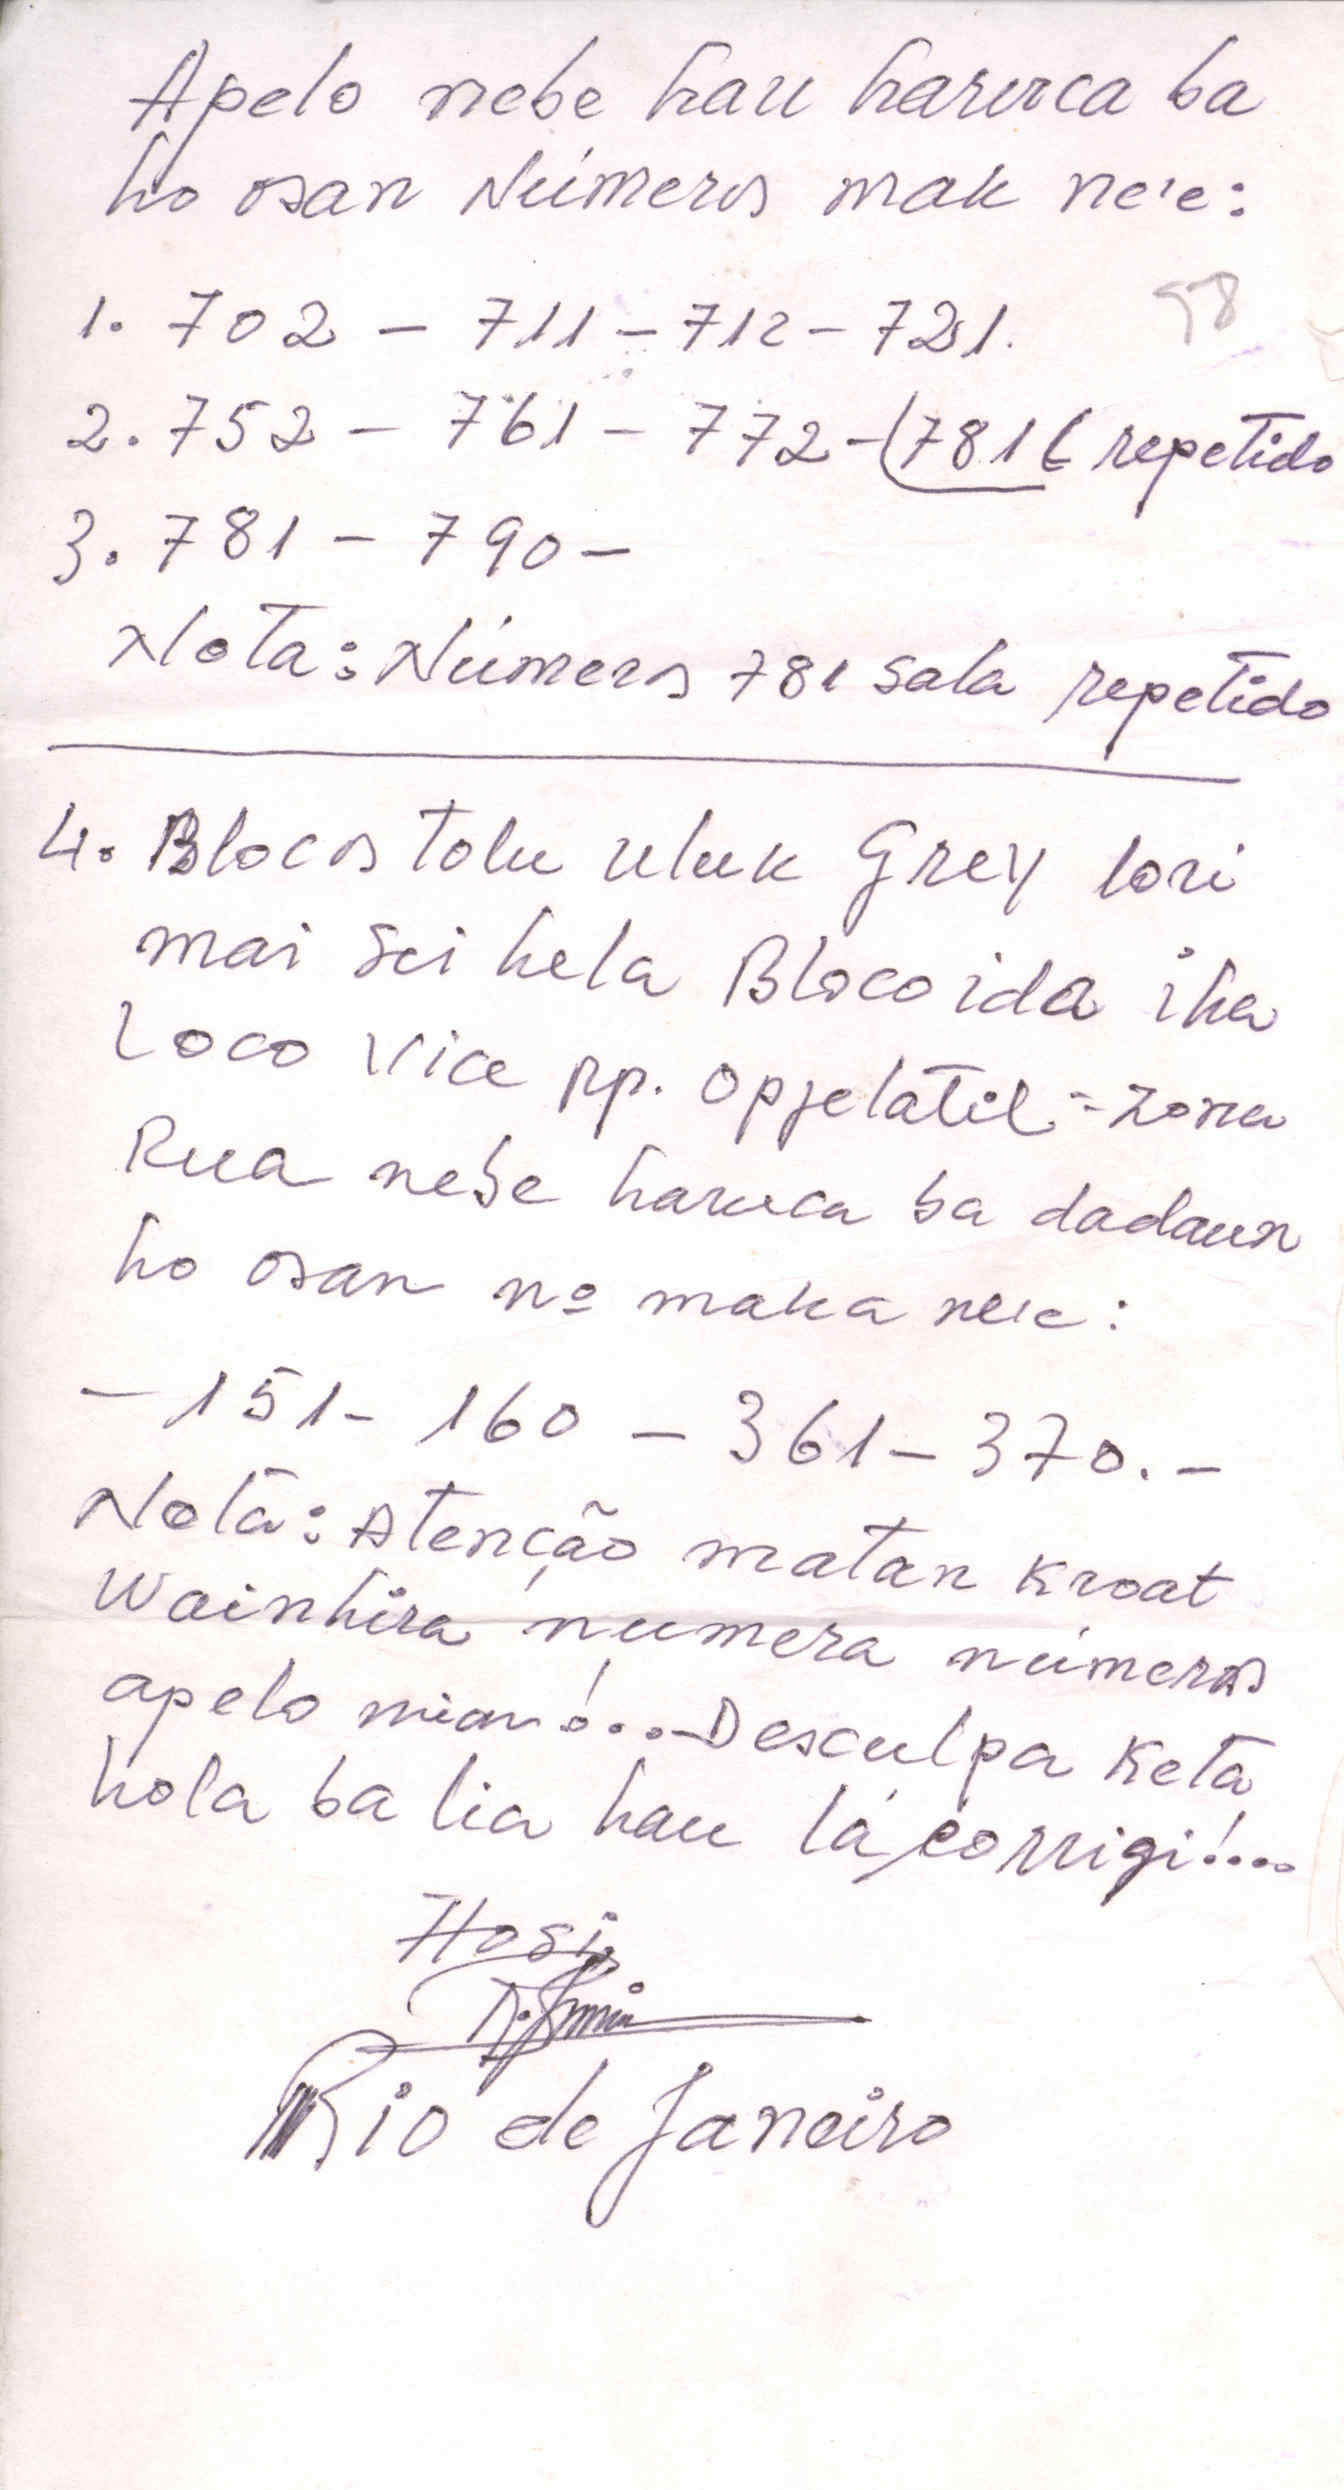 Apelo nebe hau haruca ba
ho osan Números mak ne'e:
58
1. 702 – 711 – 712 – 721.
2. 752 – 761 – 772 – (781( repetido
3. 781 – 790 –
Nota: Números 781 sala repetido
4. Blocos tolu uluk Grey lori
mai sei hela Bloco ida iha
Loco Vice Rp. Opjelatil - Zona
Rua nebe haruca ba dadaun
ho osan nº maka ne'e:
– 151 – 160 – 361 – 370. –
Nota: Atenção matan kroat
Wainhira numera números
apelo nian!... Desculpa keta
hola ba lia hau lá corrigi!....
Hosi
Rio de Janeiro